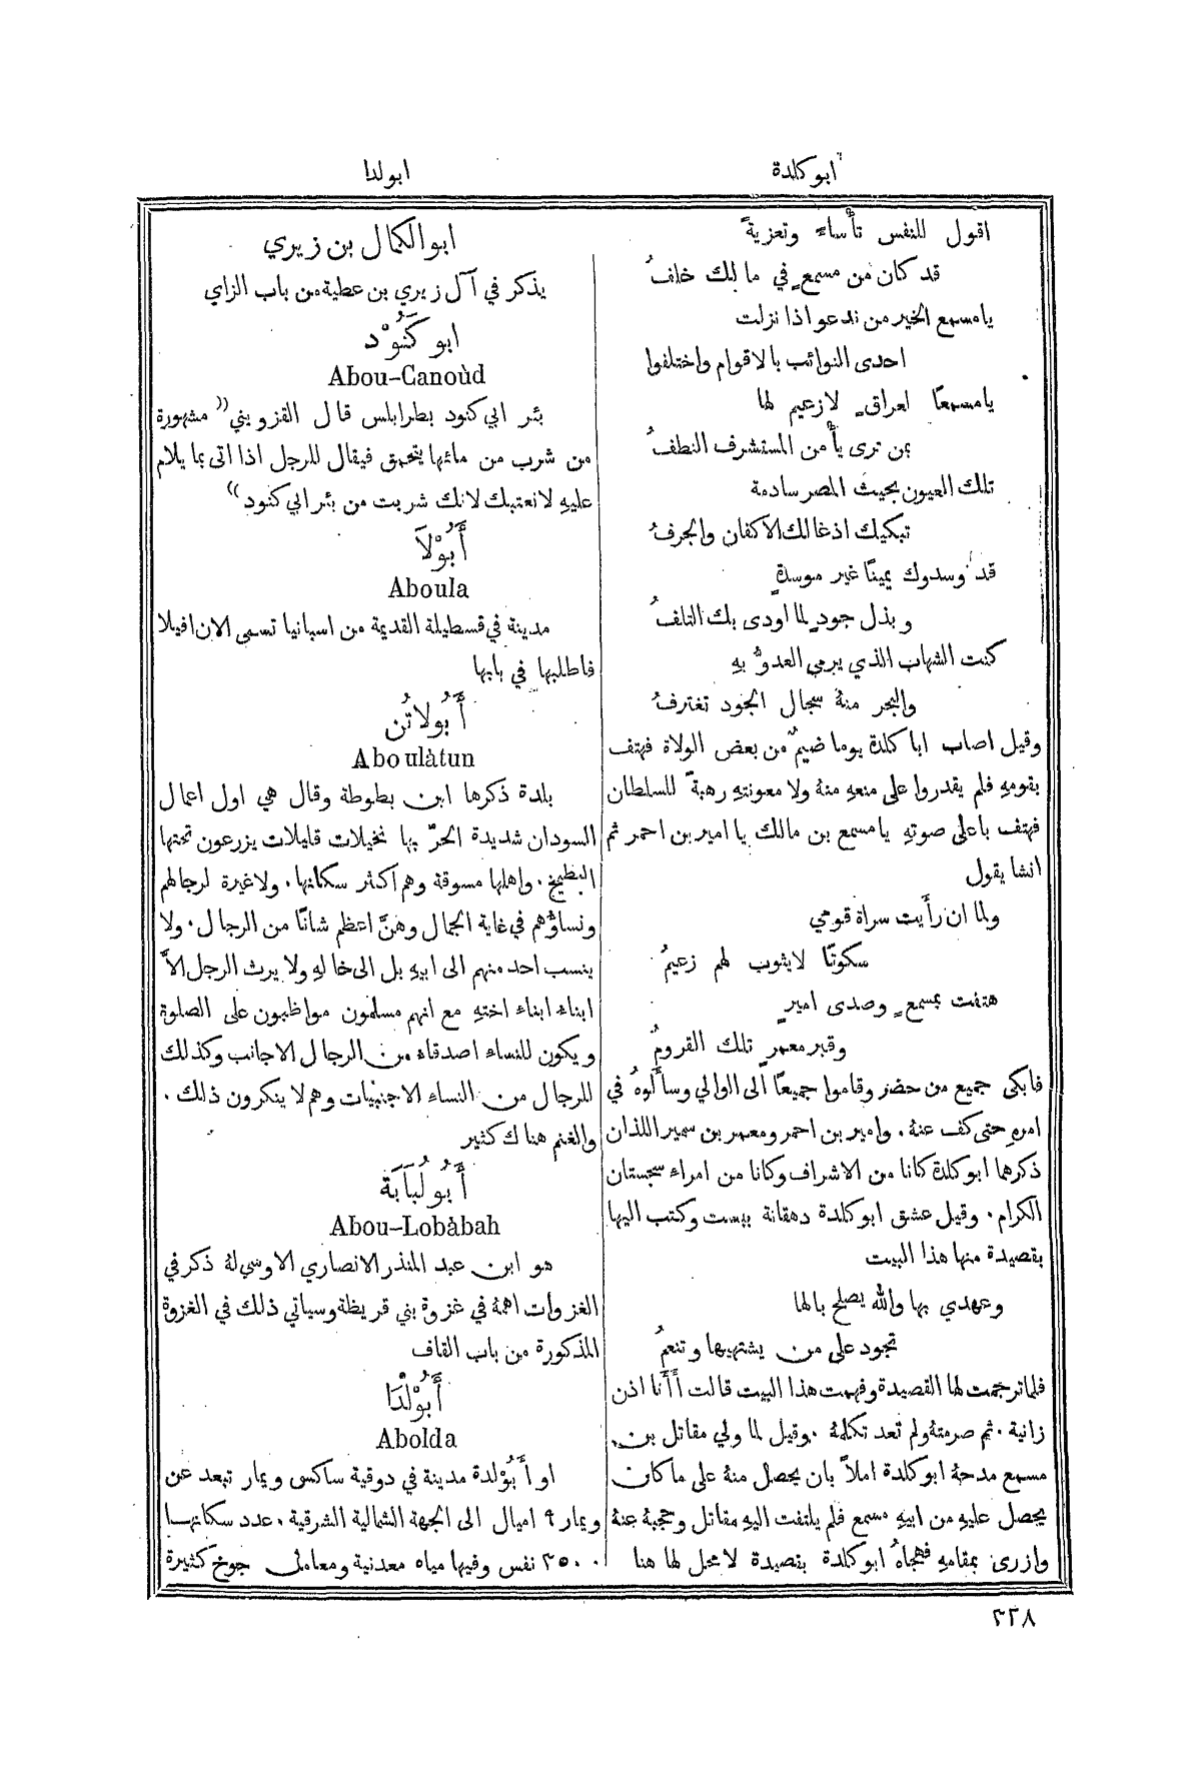 ابوكلدة
ابولدا
اقول للنفس تأساء وتعزية
قد كان من مسمعٍ في ما لك خلفُ
يا مسمع الخير من ندعو اذا نزلت
احدى النوائب بالاقوام واختلفوا
يا مسمعًا لعراقٍ لا زعيم لها
بمن ترى يأمن المستشرف النطفُ
تلك العيون بحيث المصر سادمة
تبكيك اذ غالك الاكفان والجرفُ
قد وسدوك يمينًا غير موسدةٍ
وبذل جودٍ لما اودى بك التلفُ
كنت الشهاب الذي يرمى العدوُّ بهِ
والبحر منهُ سجال الجود تغترفُ
وقيل اصاب ابا كلدة يوما ضيمٌ من بعض الولاة فهتف
بقومهِ فلم يقدروا على منعهِ منهُ ولا معونتهِ رهبةً للسلطان
فهتف باعلى صوتهِ يا مسمع بن مالك يا امير بن احمر ثم
انشا يقول
ولما ان رأيت سراة قومي
سكوتًا لا يثوب لهم زعيمُ
هتفت بمسمعٍ وصدى اميرٍ
وقبر معمرٍ تلك القرومُ
فابكى جميع من حضر وقاموا جميعًا الى الوالي وسألوهُ في
امرهِ حتى كف عنهُ. وامير بن احمر ومعمر بن سمير اللذان
ذكرهما ابوكلدة كانا من الاشراف وكانا من امراء سجستان
الكرام. وقيل عشق ابوكلدة دهقانة ببست وكتب اليها
بقصيدة منها هذا البيت
وعهدي بها والله يصلح بالها
تجود على من يشتهيها وتنعمُ
فلما ترجمت لها القصيدة وفهمت هذا البيت قالت أأنا اذن
زانية. ثم صرمتهُ ولم تعد تكلمهُ. وقيل لما ولي مقاتل بن
مسمع مدحهُ ابوكلدة املاً بان يحصل منهُ على ما كان
يحصل عليهِ من ابيهِ مسمع فلم يلتفت اليهِ مقاتل وحجبهُ عنهُ
وازرى بمقامهِ فهجاهُ ابوكلدة بقصيدة لا محل لها هنا
ابو الكمال بن زيري
يذكر في آل زيري بن عطية من باب الزاي
ابو كَنُوْد
Abou-Canoùd
بئر ابي كنود بطرابلس قال القزويني ((مشهورة
من شرب من مائها يتحمق فيقال للرجل اذا اتى بما يلام
عليهِ لا نعتبك لانك شربت من بئر ابي كنود))
أَبُوْلَا
Aboula
مدينة في قسطيلة القديمة من اسبانيا تسمى الان افيلا
فاطلبها في بابها
أَبُولاتُن
Aboulàtun
بلدة ذكرها ابن بطوطة وقال هي اول اعمال
السودان شديدة الحرّ بها نخيلات قليلات يزرعون تحتها
البطيخ. واهلها مسوقة وهم اكثر سكانها. ولا غيرة لرجالهم
ونساؤهم في غاية الجمال وهنَّ اعظم شانًا من الرجال. ولا
ينسب احد منهم الى ابيهِ بل الى خالهِ ولا يرث الرجل الاَّ
ابناء ابناء اختهِ مع انهم مسلمون مواظبون على الصلوة
ويكون للنساء اصدقاء من الرجال الاجانب وكذلك
للرجال من النساء الاجنبيات وهم لا ينكرون ذلك.
والغنم هناك كثير
أَبُو لُبَابَة
Abou-Lobàbah
هو ابن عبد المنذر الانصاري الاوسي لهُ ذكر في
الغزوات اهمهُ في غزوة بني قريظة وسياتي ذلك في الغزوة
المذكورة من باب القاف
أَبُوْلْدَا
Abolda
او أَبُوْلدة مدينة في دوقية ساكس ويمار تبعد عن
ويمار ٩ اميال الى الجهة الشمالية الشرقية. عدد سكانها
٣٥٠٠ نفس وفيها مياه معدنية ومعامل جوخ كثيرة
٢٣٨